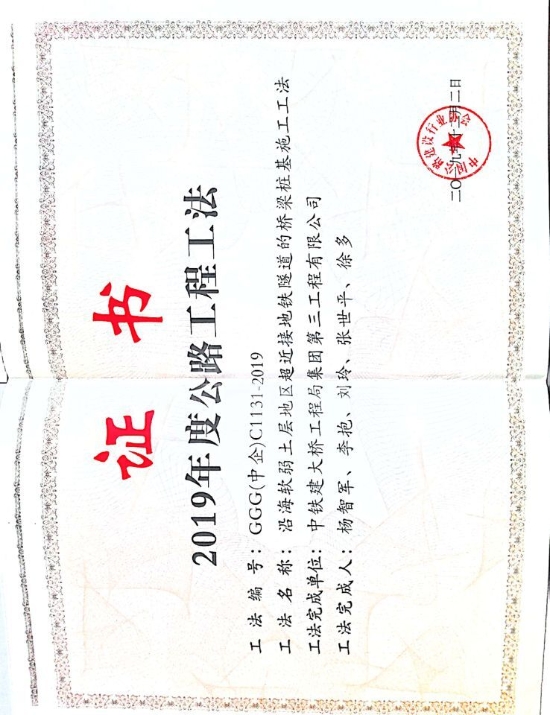 证书
2019年度公路工程工法
工法编号：GGG(中企)C1131-2019
工法名称：沿海软弱土层地区超近接地铁隧道的桥梁桩基施工工法
工法完成单位：中铁建大桥工程局集团第三工程有限公司
工法完成人：杨智军、李艳、刘玲、张世平、徐多
中国公路建设行业协会
二〇一九年十二月二日